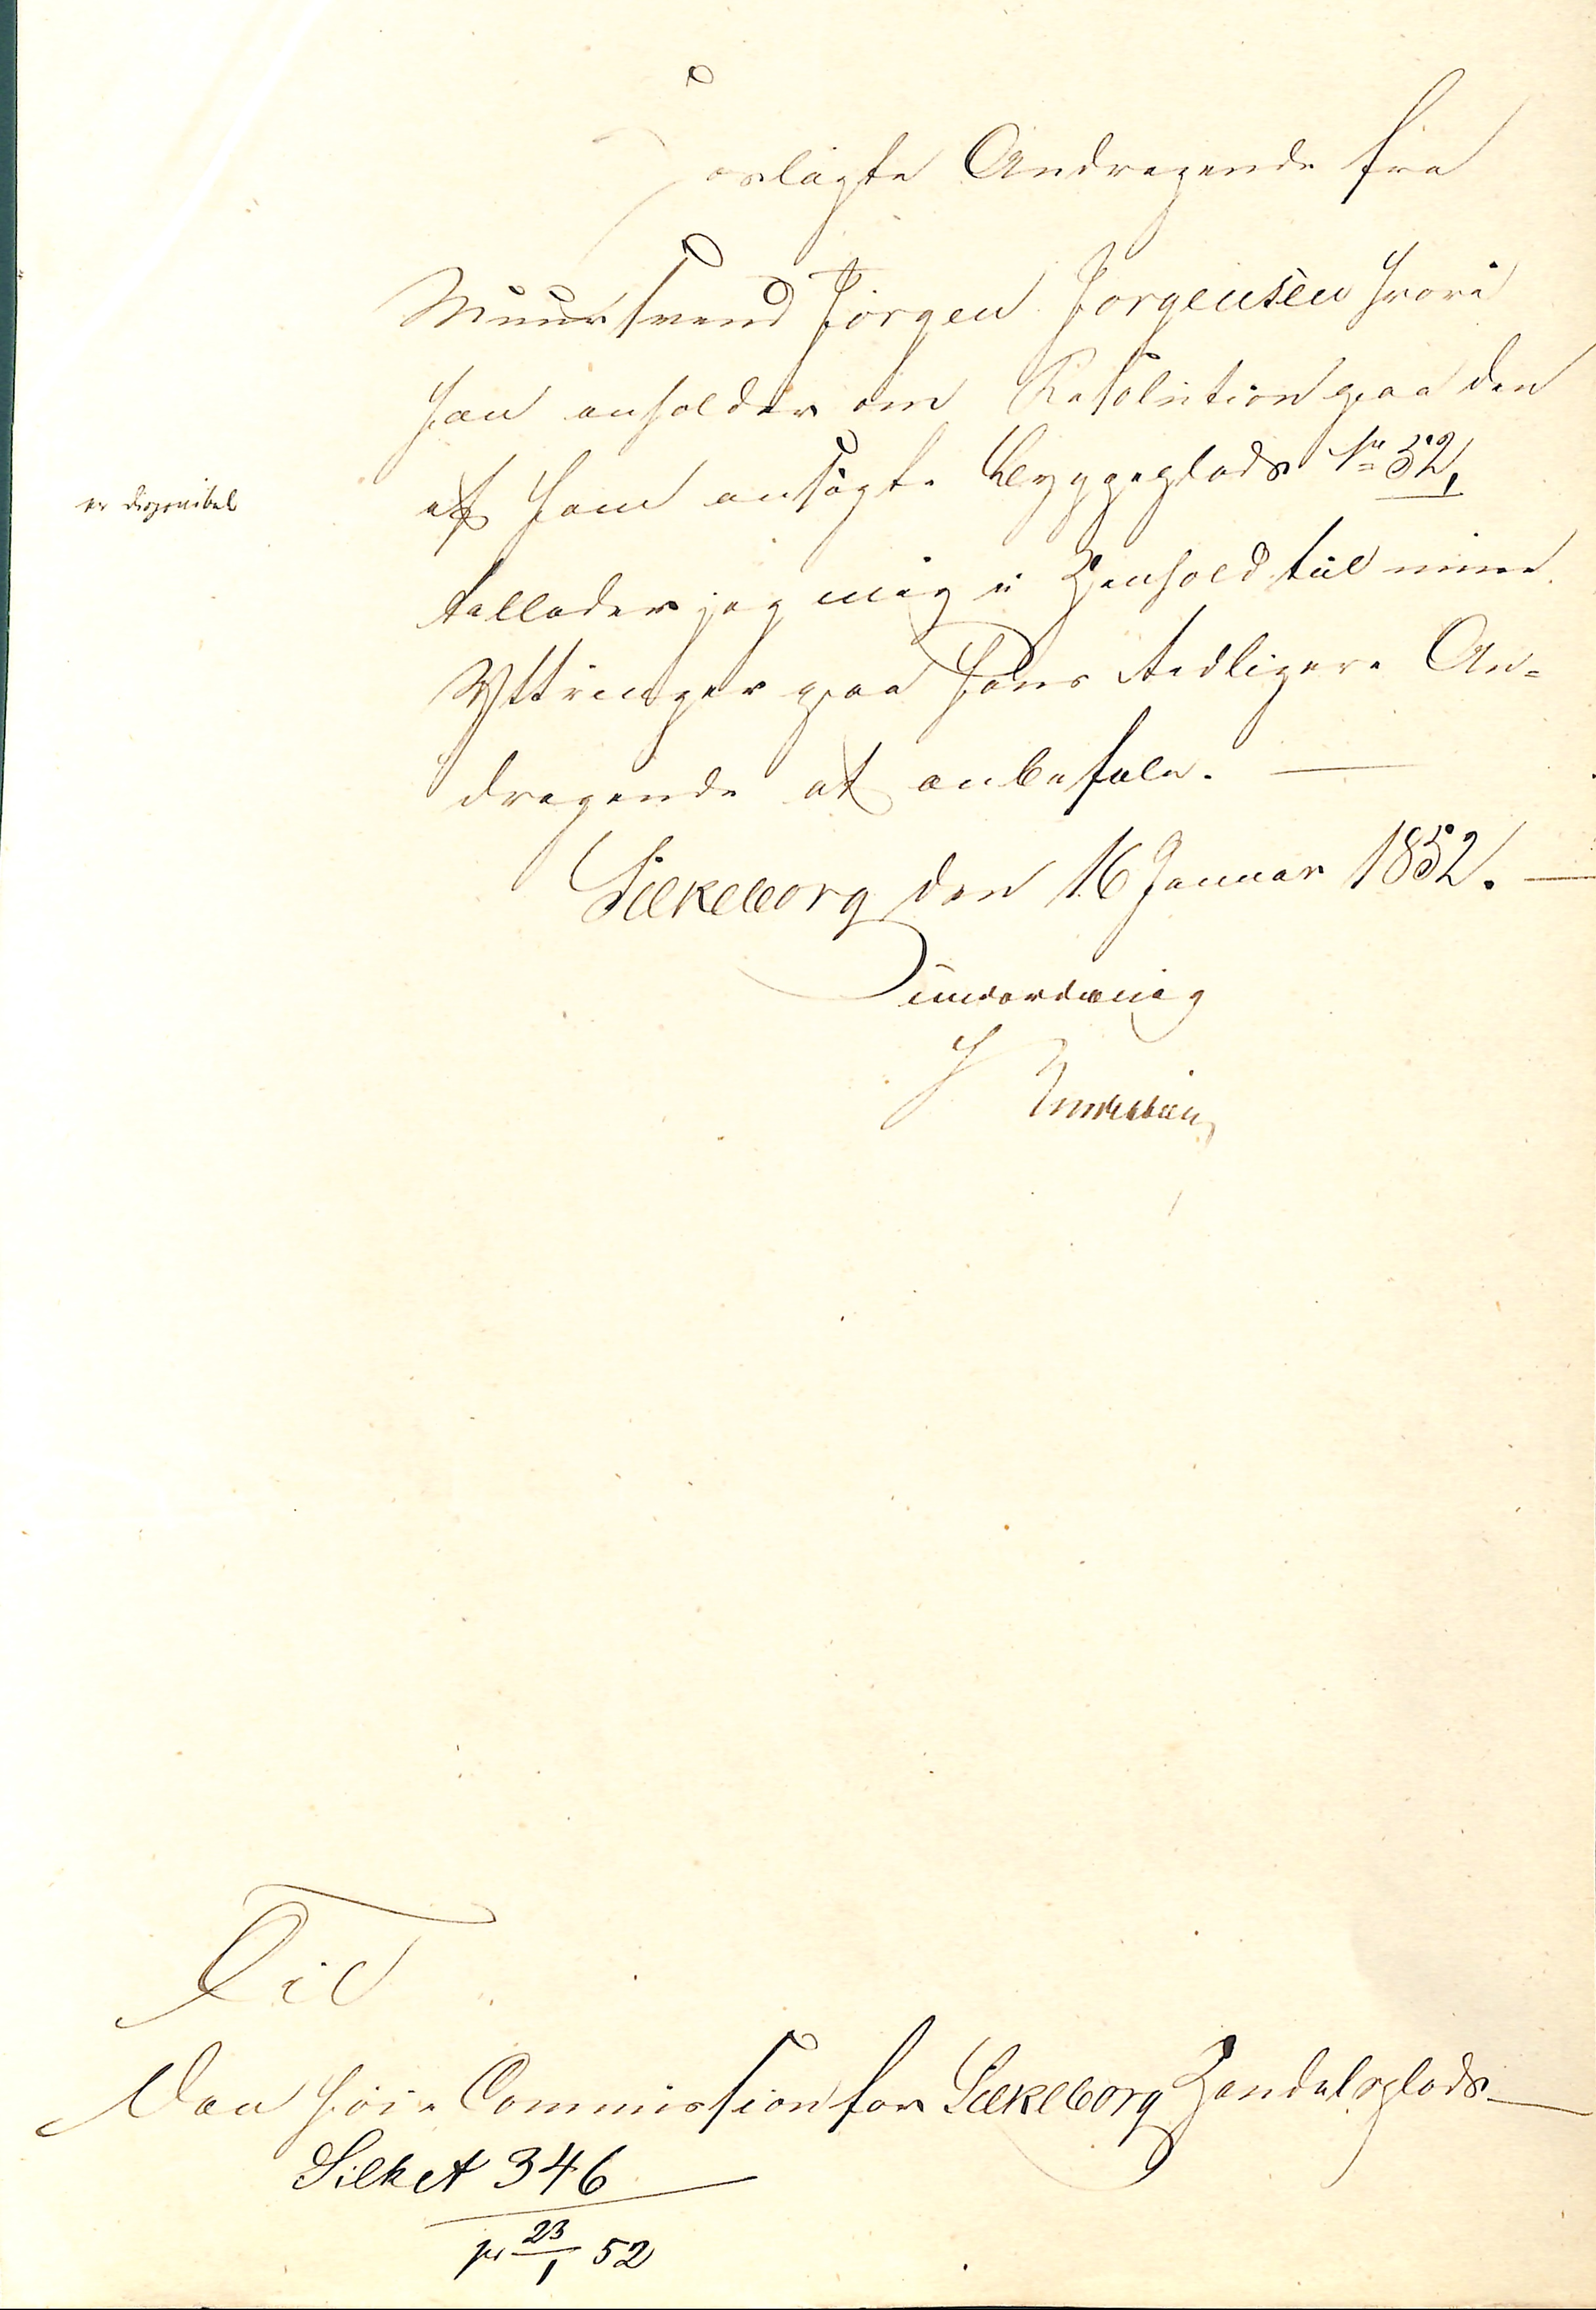 Forlagte Andragende fra
Muursvend Jörgen Jörgensen hvori
han anholder om Resolution paa den
af ham ansøgte Byggeplads No 52,
er disponibel
tillader jeg mig i Henhold til mine
Yttringer paa hans tidligere An=
dragende at anbefale. —
Silkeborg den 16 Januar 1852. —
underdanig
Til
Den høie Commission for Silkeborg Handelsplads —
Silk A 346
pr 23/1 52